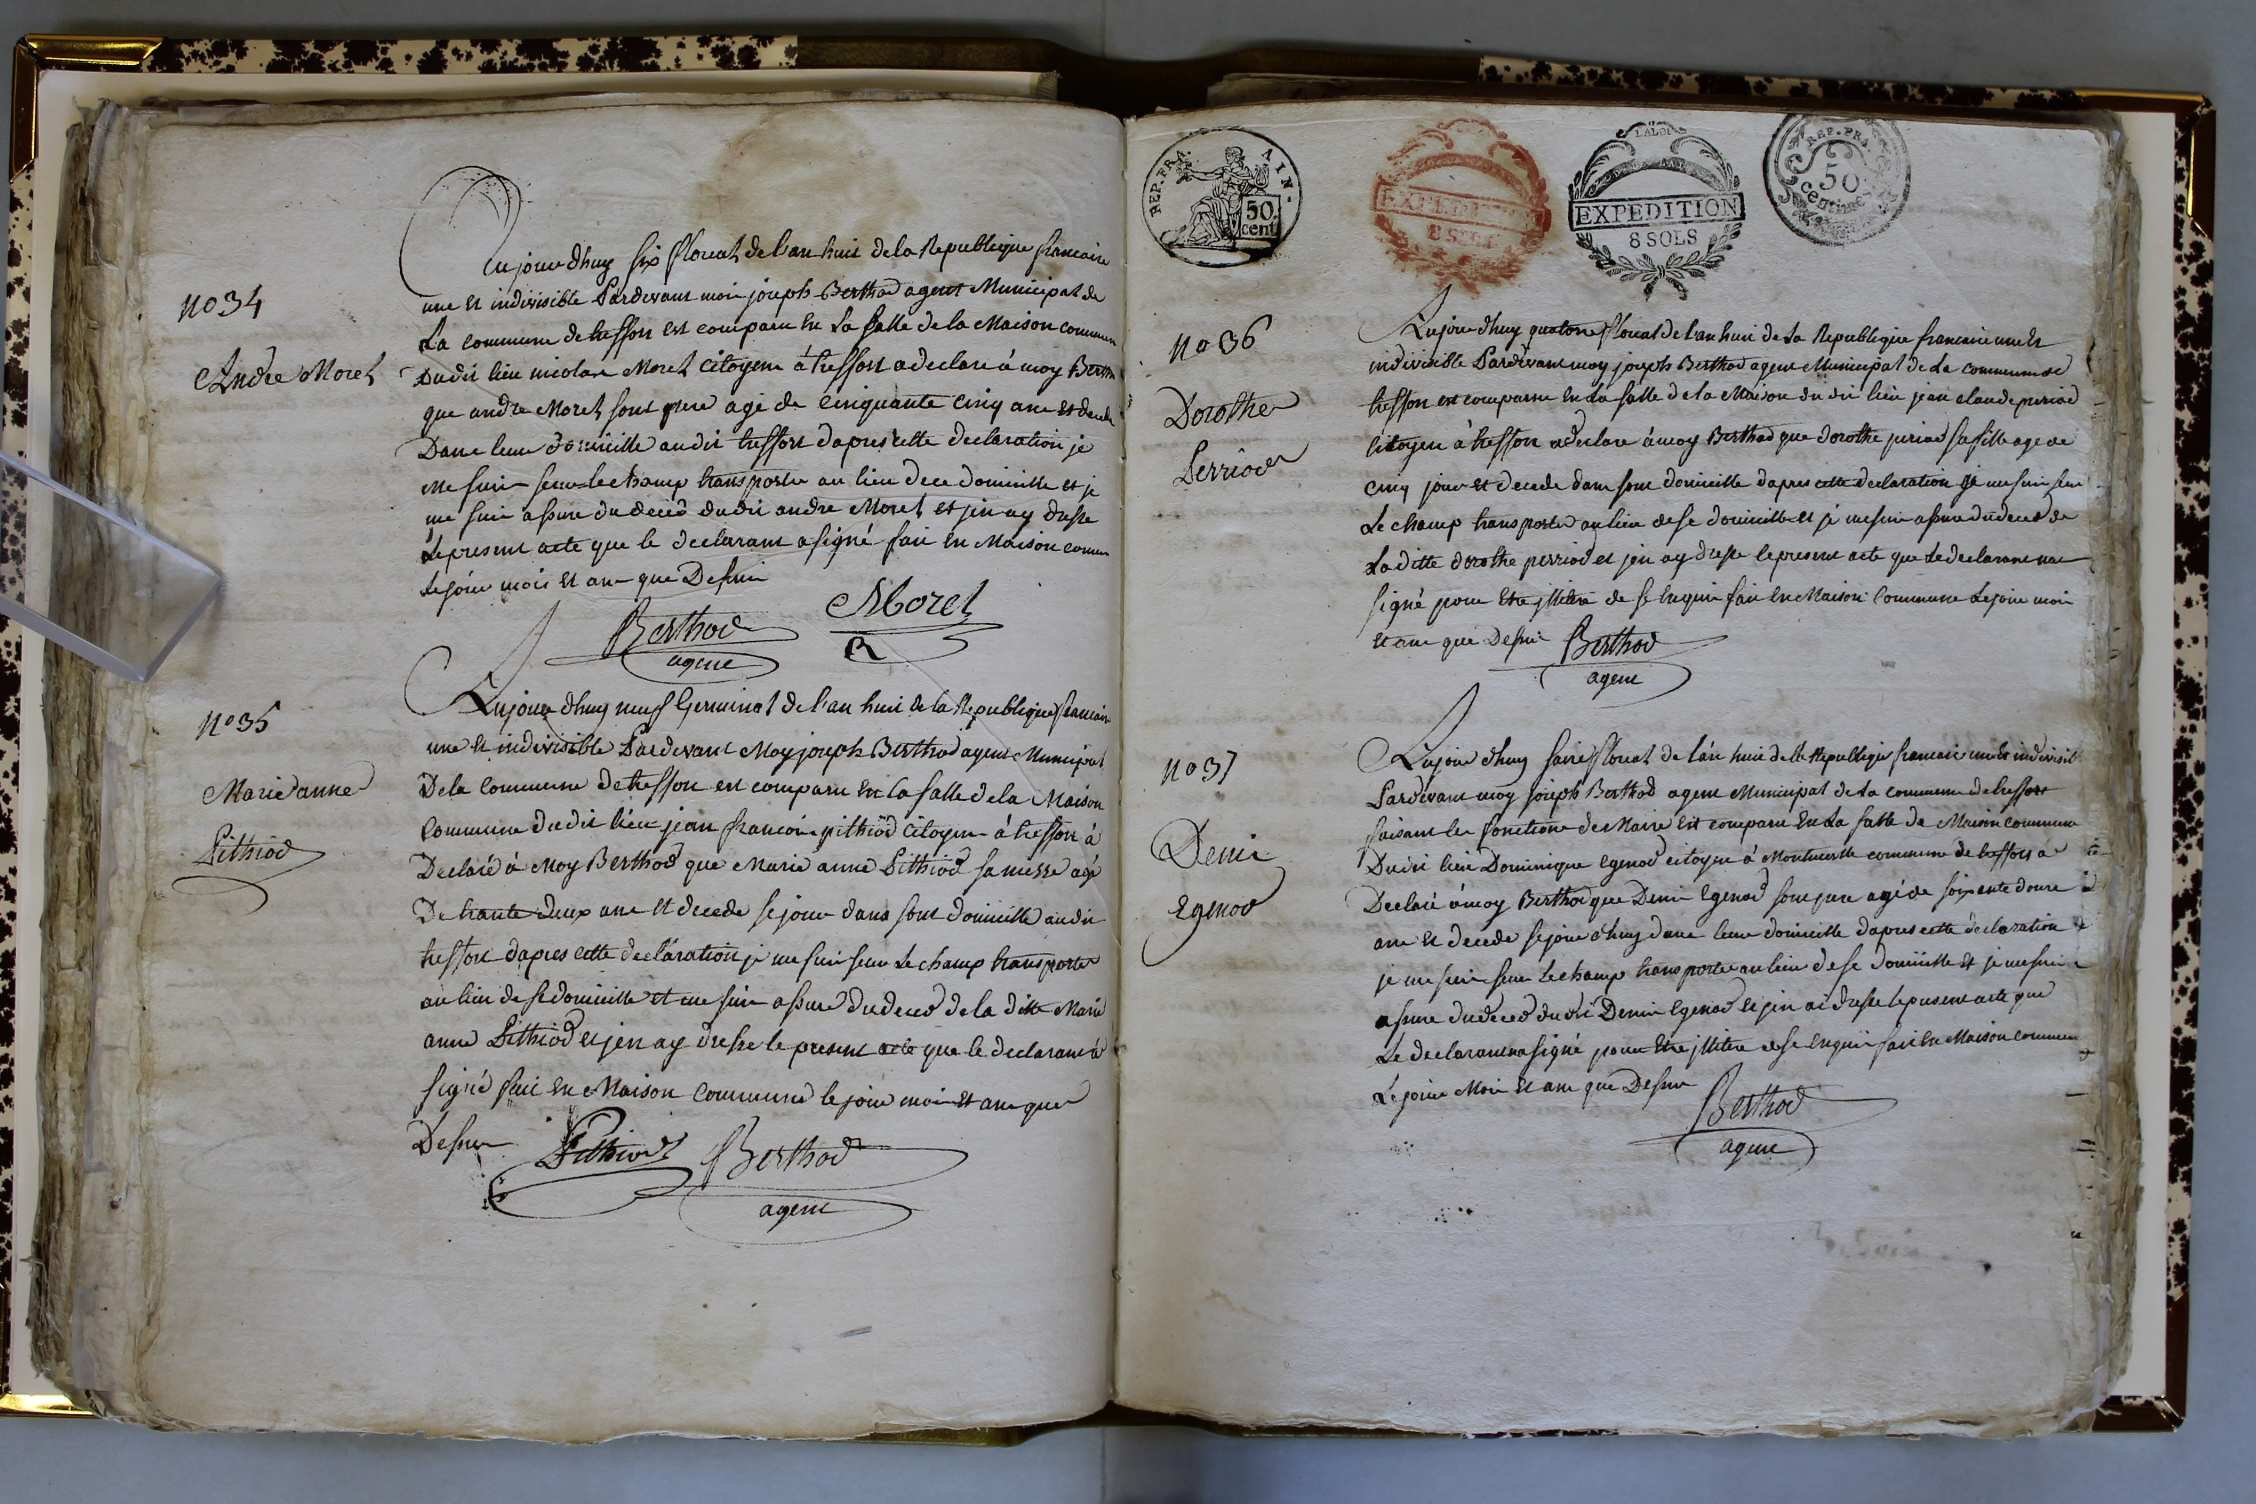 No 34
André Morel
Aujourdhuy six floreal de l'an huit de la Republique francaise
une et indivisible Pardevant moi joseph Berthod agent Municipal de
La commune de treffort est comparu En La Salle de la Maison commune
Dudit lieu nicolas Morel Citoyens à treffort a declare à moy Berthod
que andre Morel sont pere age de Cinquante Cinq ans Et decede
Dans leur domicille audit treffort dapres cette declaration je
me suis seur le champ transporter au lieu de ce domicille et je
me suis assure du decés dudit andre Morel et jen ay dresse
Le present acte que le declarant a signé fait En Maison comune
Le jour mois Et ans que Dessus
Berthod Morel
agent
No 35
Marie anne
Pithiod
Aujourdhuy neuf Germinal de l'an huit de la Republique francaise
une Et indivisible Pardevant Moy joseph Berthod agent Municipal
De la Commune de treffort est comparu En La salle de la Maison
Commune dudit lieu jean francois pithiod Citoyen à treffort à
Declaré à Moy Berthod que Marie anne Pithiod sa niesse agé
De trante deux ans Et decede se jour dans sont domicille audit
treffort dapres cette declaration je me suis seur Le champ transporter
au lieu de se domicille et me suis assure du deces de la ditte Marie
anne Pithiod et jen ay dresse le present acte que le declarant à
signé fait En Maison Commune le jour mois Et ans que
Dessus Pithiod Berthod
agent
REP. FRA. AIN.
50 cent
EXPEDITION
8 SOLS
LA LOI
EXPEDITION
8 SOLS
REP. FRA.
50
centimes
No 36
Dorothe
Perriod
Aujourdhuy quatorze floreal de l'an huit de La Republique francaise une Et
indivisible Pardevant moy joseph Berthod agent Municipal de La commune de
treffort est comparu En La salle de la Maison du dit lieu jean claude period
Citoyen à treffort a declare à moy Berthod que dorothe period sa fille age de
Cinq jour Et decede dans sont domicille dapres cette declaration je me suis seur
Le champ transporter au lieu de se domicille et jé me suis assure du deces de
La ditte dorothe perriod et jen ay dresse le present acte que Le declarant na
signé pour Etre jllitere de se Enquis fait En Maison Commune Le jour mois
Et ans que Dessus Berthod
agent
No 37
Denis
Egenod
Aujourdhuy seize floreal de l'an huit de la Republique francaise une Et indivisible
Pardevant moy joseph Berthod agent Municipal de La commune de treffort
faisant les fonctions de Maire Est comparu En La salle de Maison commune
Dudit lieu Dominique Egenod citoyen à Montmerle commune de treffort a
Declaré à moy Berthod que Denis Egenod sont pere agé de soixente douze
ans Et decede se jour d'huy dans leur domicille dapres cette declaration
je me suis seur Le champ transporter au lieu de se domicille Et je me suis
assure du deces dudit Denis Egenod et jen ai dresse le present acte que
Le declarant na signé pour Etre jllitere de se Enquis fait En Maison commune
Le jour Mois Et ans que Dessus
Berthod
agent